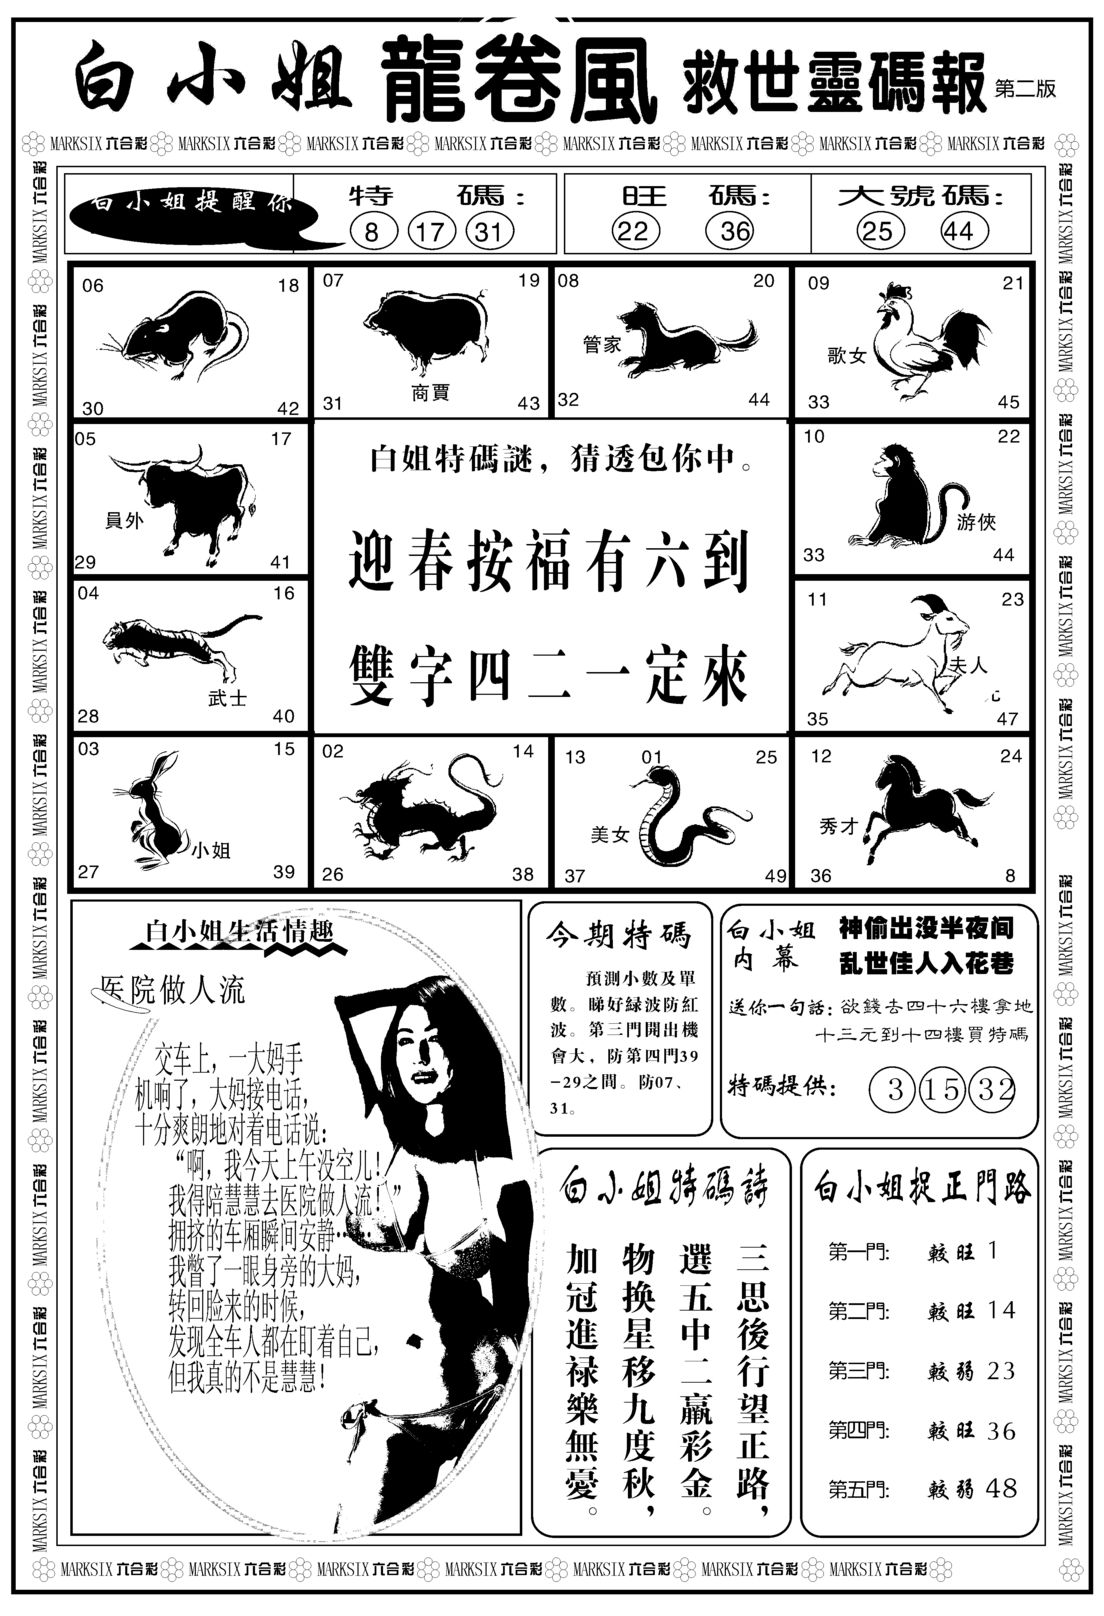 白小姐 龍卷風 救世靈碼報 第二版
MARKSIX六合彩 MARKSIX六合彩 MARKSIX六合彩 MARKSIX六合彩 MARKSIX六合彩 MARKSIX六合彩 MARKSIX六合彩
白小姐提醒你
特 碼:
8 17 31
旺 碼:
22 36
大號碼:
25 44
06 18
30 42
07 19
商賈
31 43
08 20
管家
32 44
09 21
歌女
33 45
05 17
員外
29 41
白姐特碼謎，猜透包你中。
迎春按福有六到
雙字四二一定來
10 22
游俠
33 44
04 16
武士
28 40
11 23
夫人
35 47
03 15
小姐
27 39
02 14
26 38
13 01 25
美女
37 49
12 24
秀才
36 8
白小姐生活情趣
医院做人流
交车上，一大妈手
机响了，大妈接电话，
十分爽朗地对着电话说：
“啊，我今天上午没空儿！
我得陪慧慧去医院做人流！”
拥挤的车厢瞬间安静……
我瞥了一眼身旁的大妈，
转回脸来的时候，
发现全车人都在盯着自己，
但我真的不是慧慧！
今期特碼
預測小數及單
數。睇好緑波防紅
波。第三門開出機
會大，防第四門39
-29之間。防07、
31。
白小姐
内幕
神偷出没半夜间
乱世佳人入花巷
送你一句話：欲錢去四十六樓拿地
十三元到十四樓買特碼
特碼提供： 3 15 32
白小姐特碼詩
三思後行望正路，
選五中二贏彩金。
物换星移九度秋，
加冠進禄樂無憂。
白小姐捉正門路
第一門: 較旺 1
第二門: 較旺 14
第三門: 較弱 23
第四門: 較旺 36
第五門: 較弱 48
MARKSIX六合彩 MARKSIX六合彩 MARKSIX六合彩 MARKSIX六合彩 MARKSIX六合彩 MARKSIX六合彩 MARKSIX六合彩